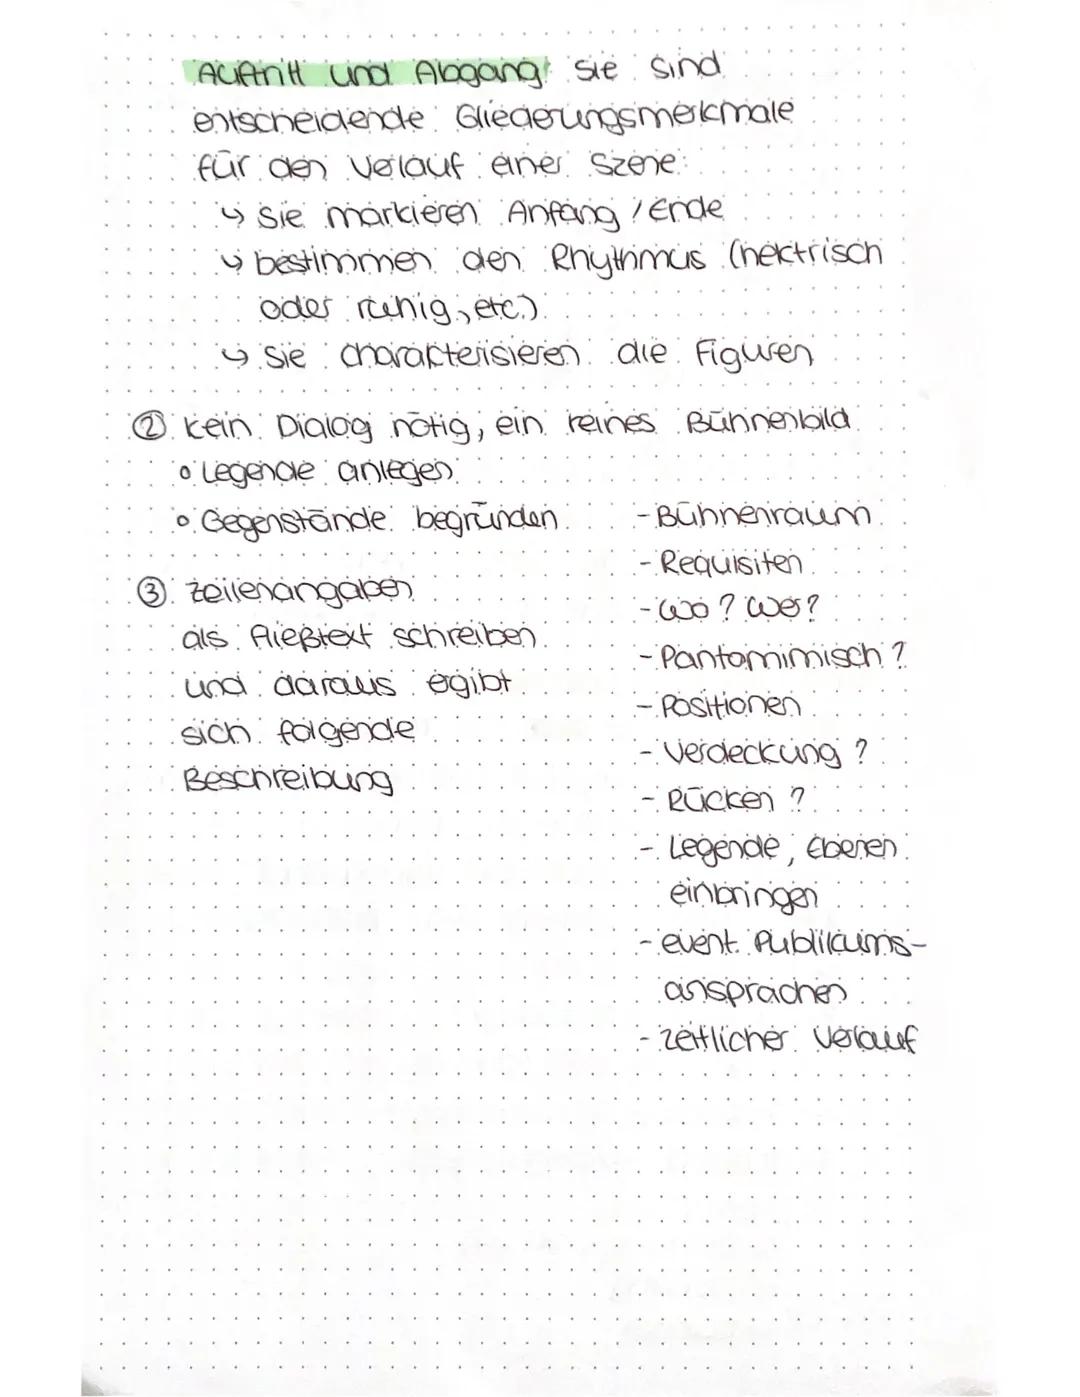 Auftritt und Abgang: sie sind
entscheidende Gliederungsmerkmale
für den Verlauf einer Szene:
↳ Sie markieren Anfang / Ende
↳ bestimmen den Rhythmus (hektrisch
oder ruhig, etc.)
↳ Sie characterisieren die Figuren
② kein Dialog nötig, ein reines Bühnenbild
○ Legende anlegen
○ Gegenstände begründen
③ Zeilenangaben
als Fließtext schreiben
und daraus egibt
sich folgende
Beschreibung
- Bühnenraum
- Requisiten
- Wo? Wer?
- Pantomimisch?
- Positionen
- Verdeckung?
- Rücken?
- Legende, Ebenen
einbringen
- event. Publikums-
ansprachen
- zeitlicher Verlauf